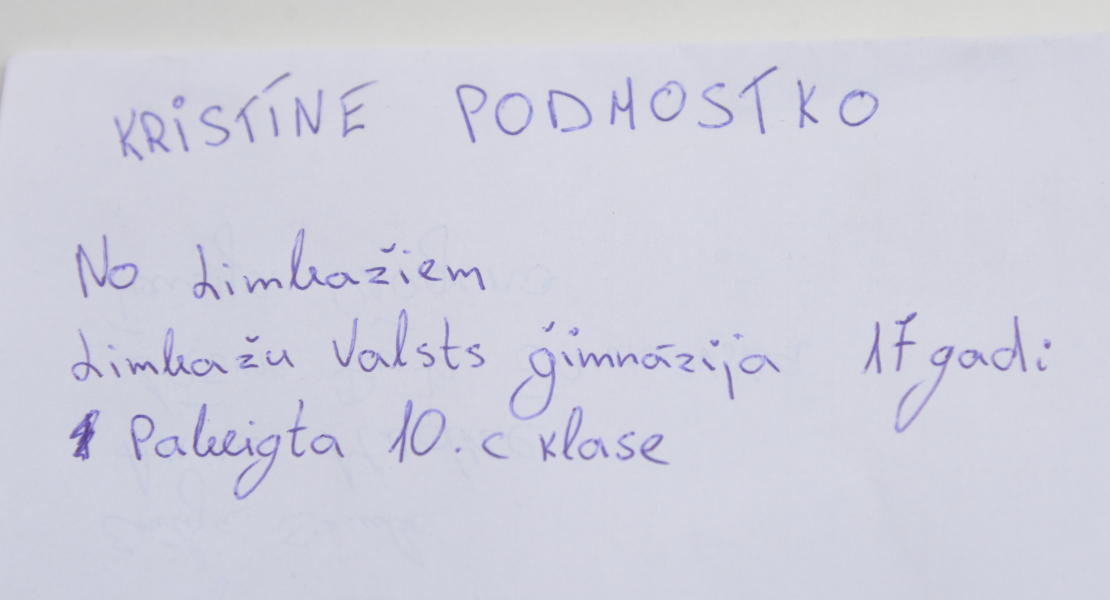 KRISTĪNE PODMOSTKO
No Limbažiem
Limbažu Valsts ģimnāzija 17 gadi
Pabeigta 10. c klase